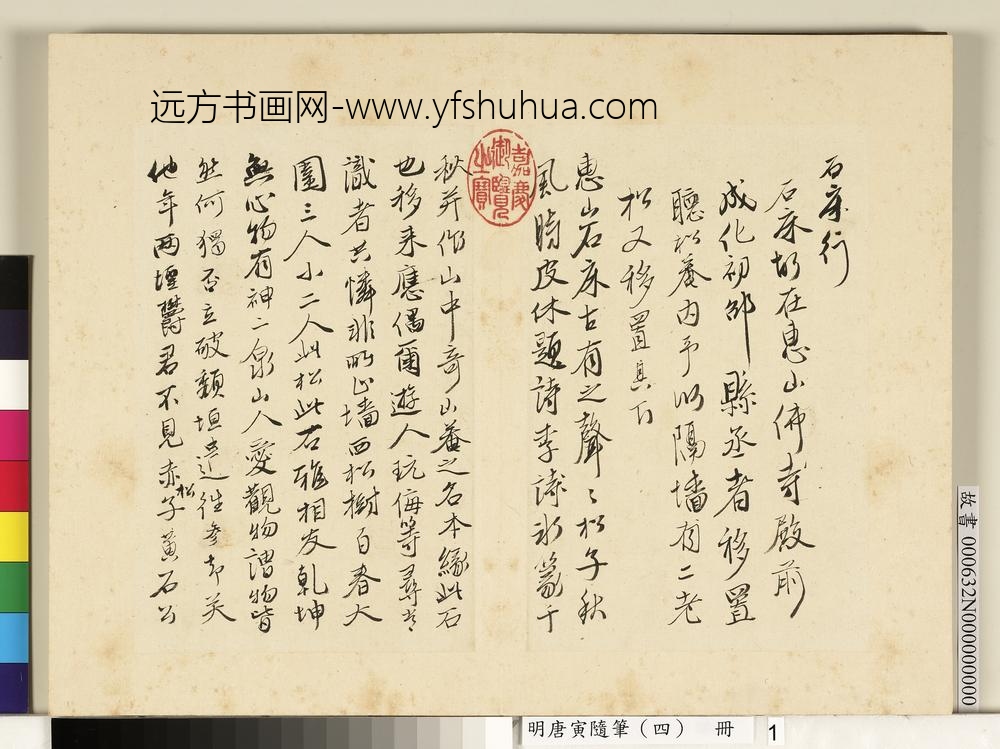 远方书画网-www.yfshuhua.com
石床行
石床故在惠山佛寺殿前
成化初邵 縣丞者移置
聽松菴内予以隔墻有二老
松又移置其下
惠山石床古有之聲〻松子秋
風時皮休題詩李潻冰篆千
秋并作山中奇山菴之名本緣此石
也移来應偶爾遊人玩侮等尋常
識者共憐非所止墻西松樹百春大
圍三人小二人此松此石雅相友乾坤
無心物有神二泉山人愛觀物謂物皆
然何獨否立破頹垣迂往參却笑
他年两堙欝君不見赤松子黄石公
嘉慶御覽之寶
故書000632N000000000
明唐寅隨筆（四） 冊 1